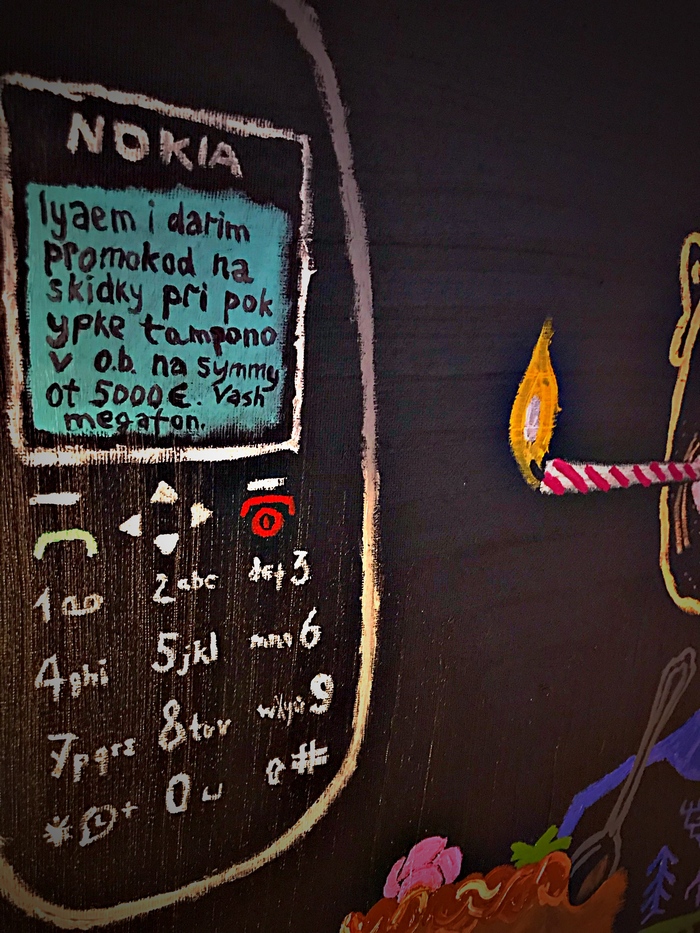 NOKIA
lyaem i darim
promokod na
skidky pri pok
ypke tampono
v o.b. na symmy
ot 5000€. Vash
megafon.
1
2abc
def3
4ghi
5jkl
mno6
7pqrs
8tuv
wxyz9
*+
0
#